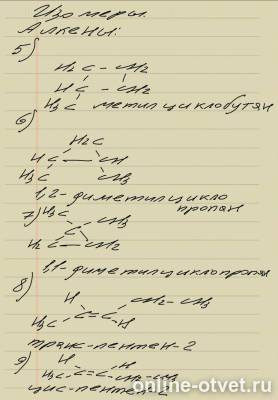 Изомеры.
Алкени:
5)
H2C – CH2
HC – CH2
H3C метилциклобутан
6)
H2C
HC — CH
H3C CH3
1,2-диметилцикло
пропан
7) H3C CH3
C
H2C — CH2
1,1-диметилциклопропан
8)
H CH2–CH3
C=C
H3C H
транс-пентен-2
9) H H
H3C C=C CH2–CH3
цис-пентен-2
online-otvet.ru